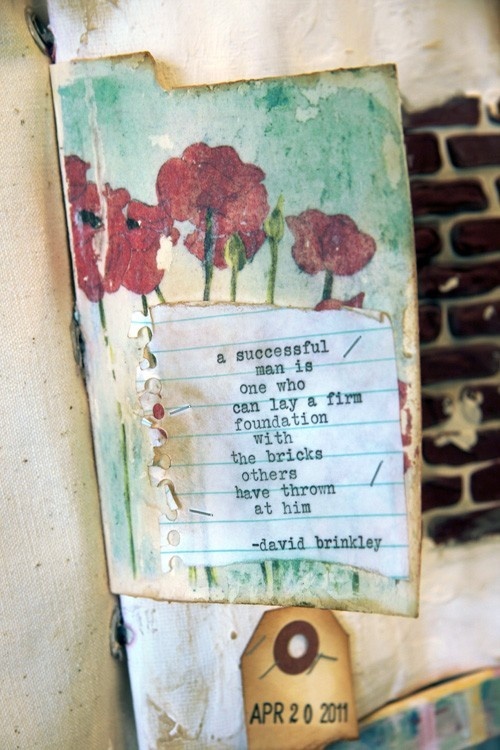 a successful
man is
one who
can lay a firm
foundation
with
the bricks
others
have thrown
at him
-david brinkley
APR 20 2011